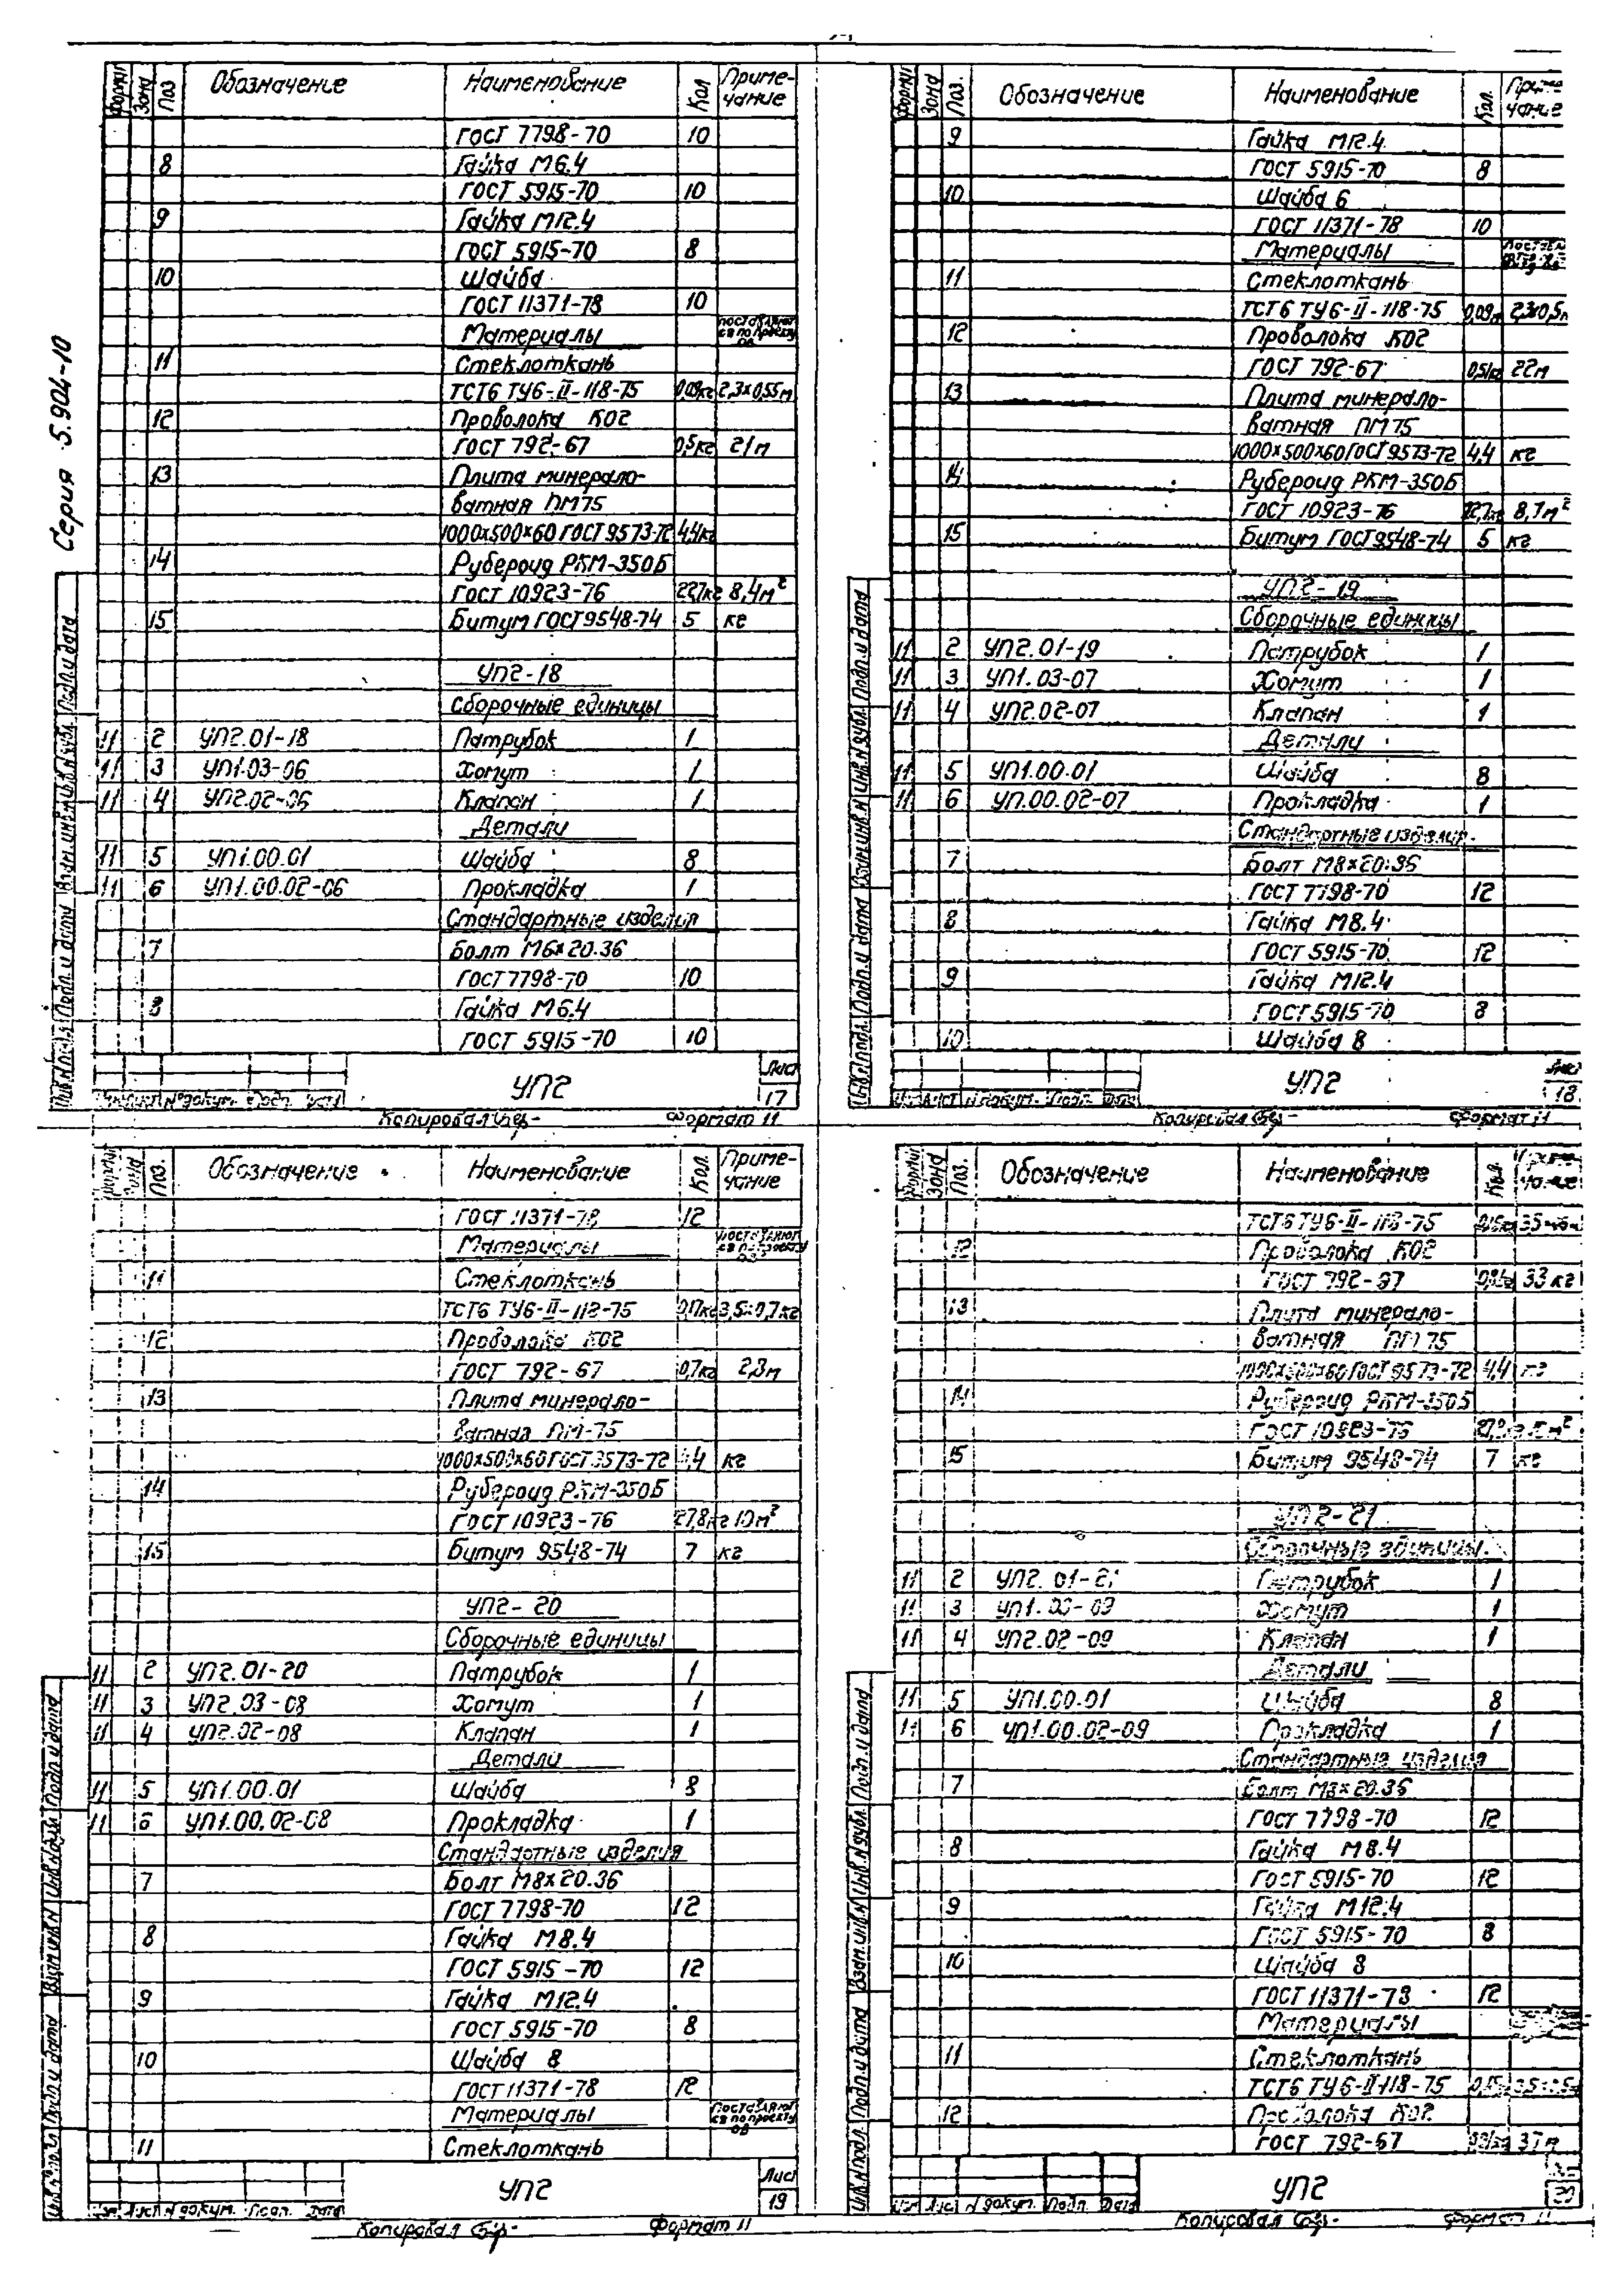 Серия 5.904-10
Формат Зона Поз. Обозначение Наименование Кол Приме-
чание
ГОСТ 7798-70 10
8 Гайка М6.4
ГОСТ 5915-70 10
9 Гайка М12.4
ГОСТ 5915-70 8
10 Шайба
ГОСТ 11371-78 10
Материалы поставляют
ся по проекту
ОВ
11 Стеклоткань
ТСТ6 ТУ6-II-118-75 0,09кг 2,3х0,55м
12 Проволока КО2
ГОСТ 792-67 0,5кг 21м
13 Плита минерало-
ватная ПМ75
1000х500х60 ГОСТ 9573-72 4,4кг
14 Рубероид РКМ-350Б
ГОСТ 10923-76 22,7кг 8,4м²
15 Битум ГОСТ 9548-74 5 кг
УП2-18
Сборочные единицы
11 2 УП2.01-18 Патрубок 1
11 3 УП1.03-06 Хомут 1
11 4 УП2.02-06 Клапан 1
Детали
11 5 УП1.00.01 Шайба 8
11 6 УП1.00.02-06 Прокладка 1
Стандартные изделия
7 Болт М6х20.36
ГОСТ 7798-70 10
8 Гайка М6.4
ГОСТ 5915-70 10
УП2 Лист
17
Копировал Формат 11
Формат Зона Поз. Обозначение Наименование Кол. Приме-
чание
9 Гайка М12.4
ГОСТ 5915-70 8
10 Шайба 6
ГОСТ 11371-78 10
Материалы
11 Стеклоткань
ТСТ6 ТУ6-II-118-75 0,09кг
12 Проволока КО2
ГОСТ 792-67 0,51кг 22м
13 Плита минерало-
ватная ПМ75
1000х500х60 ГОСТ 9573-72 4,4 кг
14 Рубероид РКМ-350Б
ГОСТ 10923-76 22,7кг 8,7м²
15 Битум ГОСТ 9548-74 5 кг
УП2-19
Сборочные единицы
11 2 УП2.01-19 Патрубок 1
11 3 УП1.03-07 Хомут 1
11 4 УП2.02-07 Клапан 1
Детали
11 5 УП1.00.01 Шайба 8
11 6 УП.00.02-07 Прокладка 1
Стандартные изделия
7 Болт М8х20.36
ГОСТ 7798-70 12
8 Гайка М8.4
ГОСТ 5915-70 12
9 Гайка М12.4
ГОСТ 5915-70 8
10 Шайба 8
УП2 Лист
18
Копировал Формат 11
Формат Зона Поз. Обозначение Наименование Кол. Приме-
чание
ГОСТ 11371-78 12
Материалы поставляют
ся по проекту
ОВ
11 Стеклоткань
ТСТ6 ТУ6-II-118-75 0,17кг 3,5х0,7кг
12 Проволока КО2
ГОСТ 792-67 0,7кг 28м
13 Плита минерало-
ватная ПМ-75
1000х500х60 ГОСТ 9573-72 4,4 кг
14 Рубероид РКМ-350Б
ГОСТ 10923-76 27,8кг 10м²
15 Битум 9548-74 7 кг
УП2-20
Сборочные единицы
11 2 УП2.01-20 Патрубок 1
11 3 УП2.03-08 Хомут 1
11 4 УП2.02-08 Клапан 1
Детали
11 5 УП1.00.01 Шайба 8
11 6 УП1.00.02-08 Прокладка 1
Стандартные изделия
7 Болт М8х20.36
ГОСТ 7798-70 12
8 Гайка М8.4
ГОСТ 5915-70 12
9 Гайка М12.4
ГОСТ 5915-70 8
10 Шайба 8
ГОСТ 11371-78 12
Материалы поставляют
ся по проекту
ОВ
11 Стеклоткань
Изм Лист N докум. Подп. Дата УП2 Лист
19
Копировал Формат 11
Формат Зона Поз. Обозначение Наименование Кол.
ТСТ6 ТУ6-II-118-75
12 Проволока КО2
ГОСТ 792-67 33 кг
13 Плита минерало-
ватная ПМ75
1000х500х60 ГОСТ 9573-72 4,4 кг
14 Рубероид РКМ-350Б
ГОСТ 10923-76
15 Битум 9548-74 7 кг
УП2-21
Сборочные единицы
11 2 УП2.01-21 Патрубок 1
11 3 УП1.03-09 Хомут 1
11 4 УП2.02-09 Клапан 1
Детали
11 5 УП1.00.01 Шайба 8
11 6 УП1.00.02-09 Прокладка 1
Стандартные изделия
7 Болт М8х20.36
ГОСТ 7798-70 12
8 Гайка М8.4
ГОСТ 5915-70 12
9 Гайка М12.4
ГОСТ 5915-70 8
10 Шайба 8
ГОСТ 11371-78 12
Материалы
11 Стеклоткань
ТСТ6 ТУ6-II-118-75
12 Проволока КО2
ГОСТ 792-67 37м
Изм Лист N докум. Подп. Дата УП2
20
Копировал Формат 11